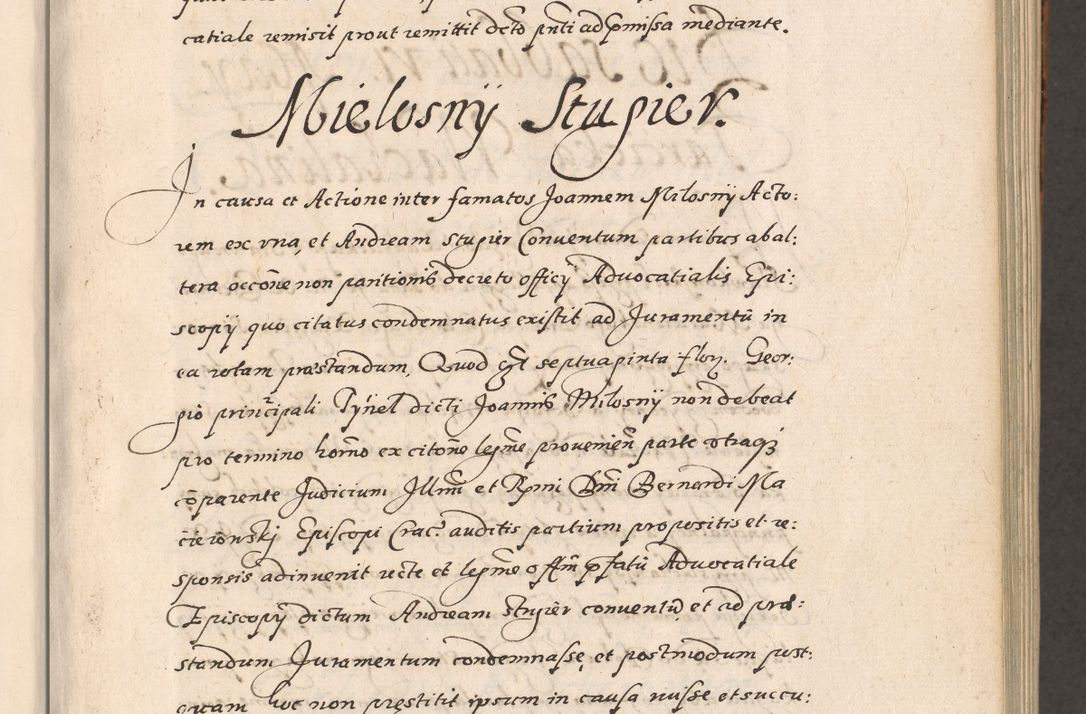 catiale remisit prout remittit decto pnti ad pmissa mediante.
Mielosnÿ Stugier.
In causa et Actione inter famatos Joannem Milosnÿ Acto:
rem ex vna, et Andream Stugier Conventum partibus ab al:
tera occone non paritionis decreto officÿ Advocatialis Epi:
scopÿ quo citatus condemnatus existit ad Juramentū in
ea rotam præstandum, Quod septuaginta flor. Geor:
gio principali Tÿnel dicti Joannis Milosnÿ non debeat
pro termino horno ex citone legme provenien parte vtraqz
cōparente Judicium Illmi et Rmi Dni Bernardi Ma
cieiowskj Episcopi Crac. auditis partium propositis et re:
sponsis adinvenit recte et legme offm pfatū Advocatiale
Episcopÿ dictum Andream Stugier conventū, et ad præ:
standum Juramentum condemnasse, et postmodum post:
quam hoc non pręstitit ipsum in causa nisse et succu: